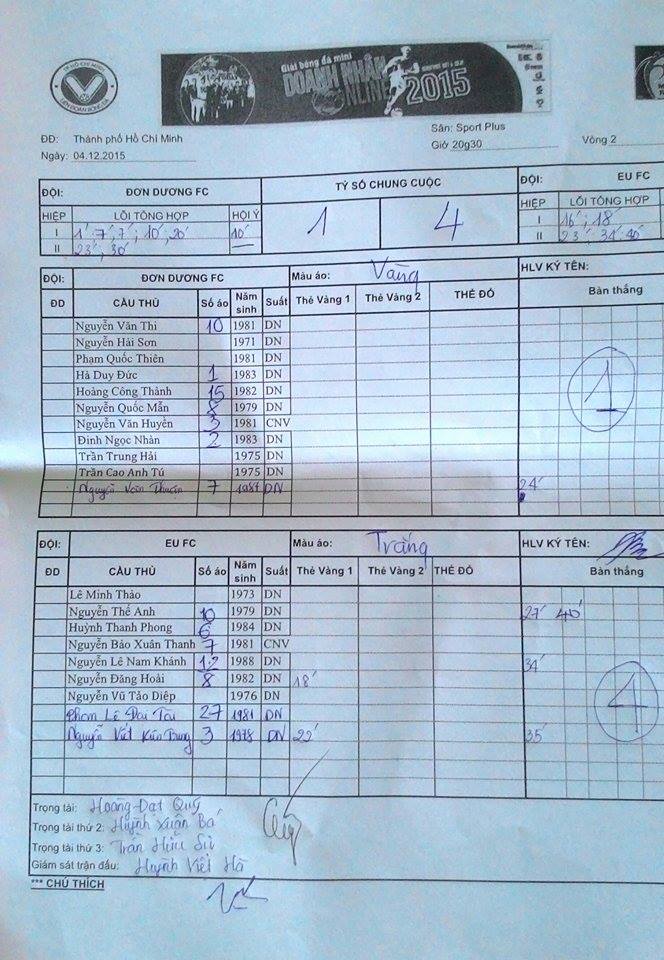 TP. HỒ CHÍ MINH
LIÊN ĐOÀN BÓNG ĐÁ
Giải bóng đá mini
DOANH NHÂN
ONLINE
2015
ĐĐ: Thành phố Hồ Chí Minh
Sân: Sport Plus
Ngày: 04.12.2015
Giờ 20g30
Vòng 2
ĐỘI: ĐƠN DƯƠNG FC TỶ SỐ CHUNG CUỘC ĐỘI: EU FC
HIỆP LỖI TỔNG HỢP HỘI Ý 1 4 HIỆP LỖI TỔNG HỢP
I 1' 7' 7' 10' 20' 10' I 16' 18'
II 23' 30' — II 23' 34' 40'
ĐỘI: ĐƠN DƯƠNG FC Màu áo: Vàng HLV KÝ TÊN:
ĐD CẦU THỦ Số áo Năm sinh Suất Thẻ Vàng 1 Thẻ Vàng 2 THẺ ĐỎ Bàn thắng
Nguyễn Văn Thi 10 1981 DN
Nguyễn Hải Sơn 1971 DN
Phạm Quốc Thiên 1981 DN
Hà Duy Đức 1 1983 DN
Hoàng Công Thành 15 1982 DN 1
Nguyễn Quốc Mẫn 8 1979 DN
Nguyễn Văn Huyền 3 1981 CNV
Đinh Ngọc Nhàn 2 1983 DN
Trần Trung Hải 1975 DN
Trần Cao Anh Tú 1975 DN
Nguyễn Văn 7 DN 24'
ĐỘI: EU FC Màu áo: Trắng HLV KÝ TÊN:
ĐD CẦU THỦ Số áo Năm sinh Suất Thẻ Vàng 1 Thẻ Vàng 2 THẺ ĐỎ Bàn thắng
Lê Minh Thảo 1973 DN
Nguyễn Thế Anh 10 1979 DN 27' 40'
Huỳnh Thanh Phong 6 1984 DN
Nguyễn Bảo Xuân Thanh 7 1981 CNV
Nguyễn Lê Nam Khánh 12 1988 DN 34'
Nguyễn Đăng Hoài 8 1982 DN 18'
Nguyễn Vũ Tảo Diệp 1976 DN 4
Phạm Lê 27 1981 DN
Nguyễn Viết Trung 3 1978 DN 22' 35'
Trọng tài: Hoàng Đạt Quý
Trọng tài thứ 2: Huỳnh Xuân Ba
Trọng tài thứ 3: Trần Hữu Sử
Giám sát trận đấu: Huỳnh Viết Hà
*** CHÚ THÍCH